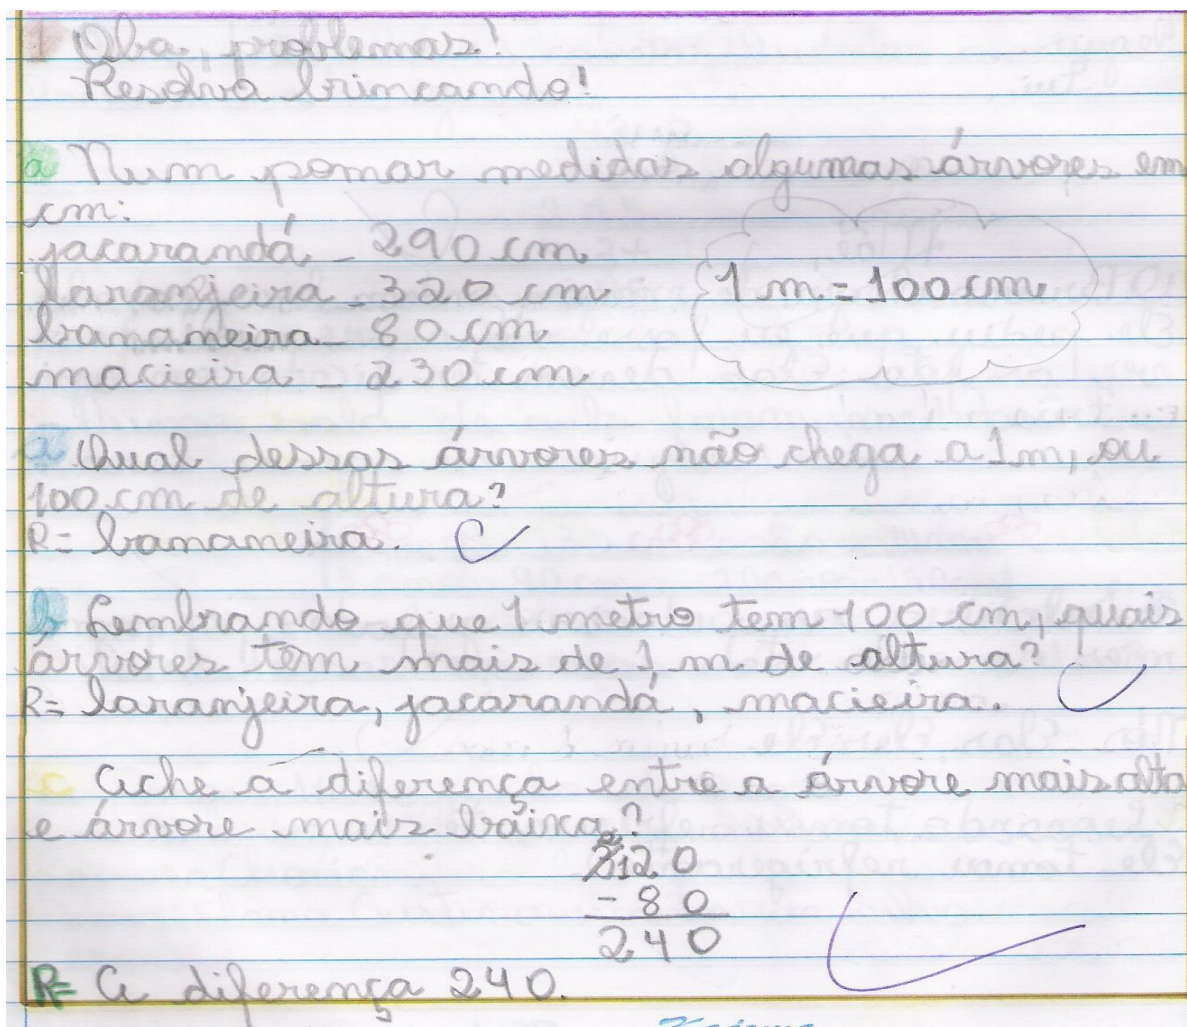 Oba, problemas!
Resolva brincando!
a Num pomar medidas algumas árvores em
cm:
jacarandá - 290 cm
laranjeira - 320 cm
bananeira - 80 cm
macieira - 230 cm
1 m = 100 cm
a Qual dessas árvores não chega a 1 m, ou
100 cm de altura?
R = bananeira.
b Lembrando que 1 metro tem 100 cm, quais
árvores têm mais de 1 m de altura?
R = laranjeira, jacarandá, macieira.
c Ache a diferença entre a árvore mais alta
e árvore mais baixa?
3120
- 80
240
R = A diferença 240.